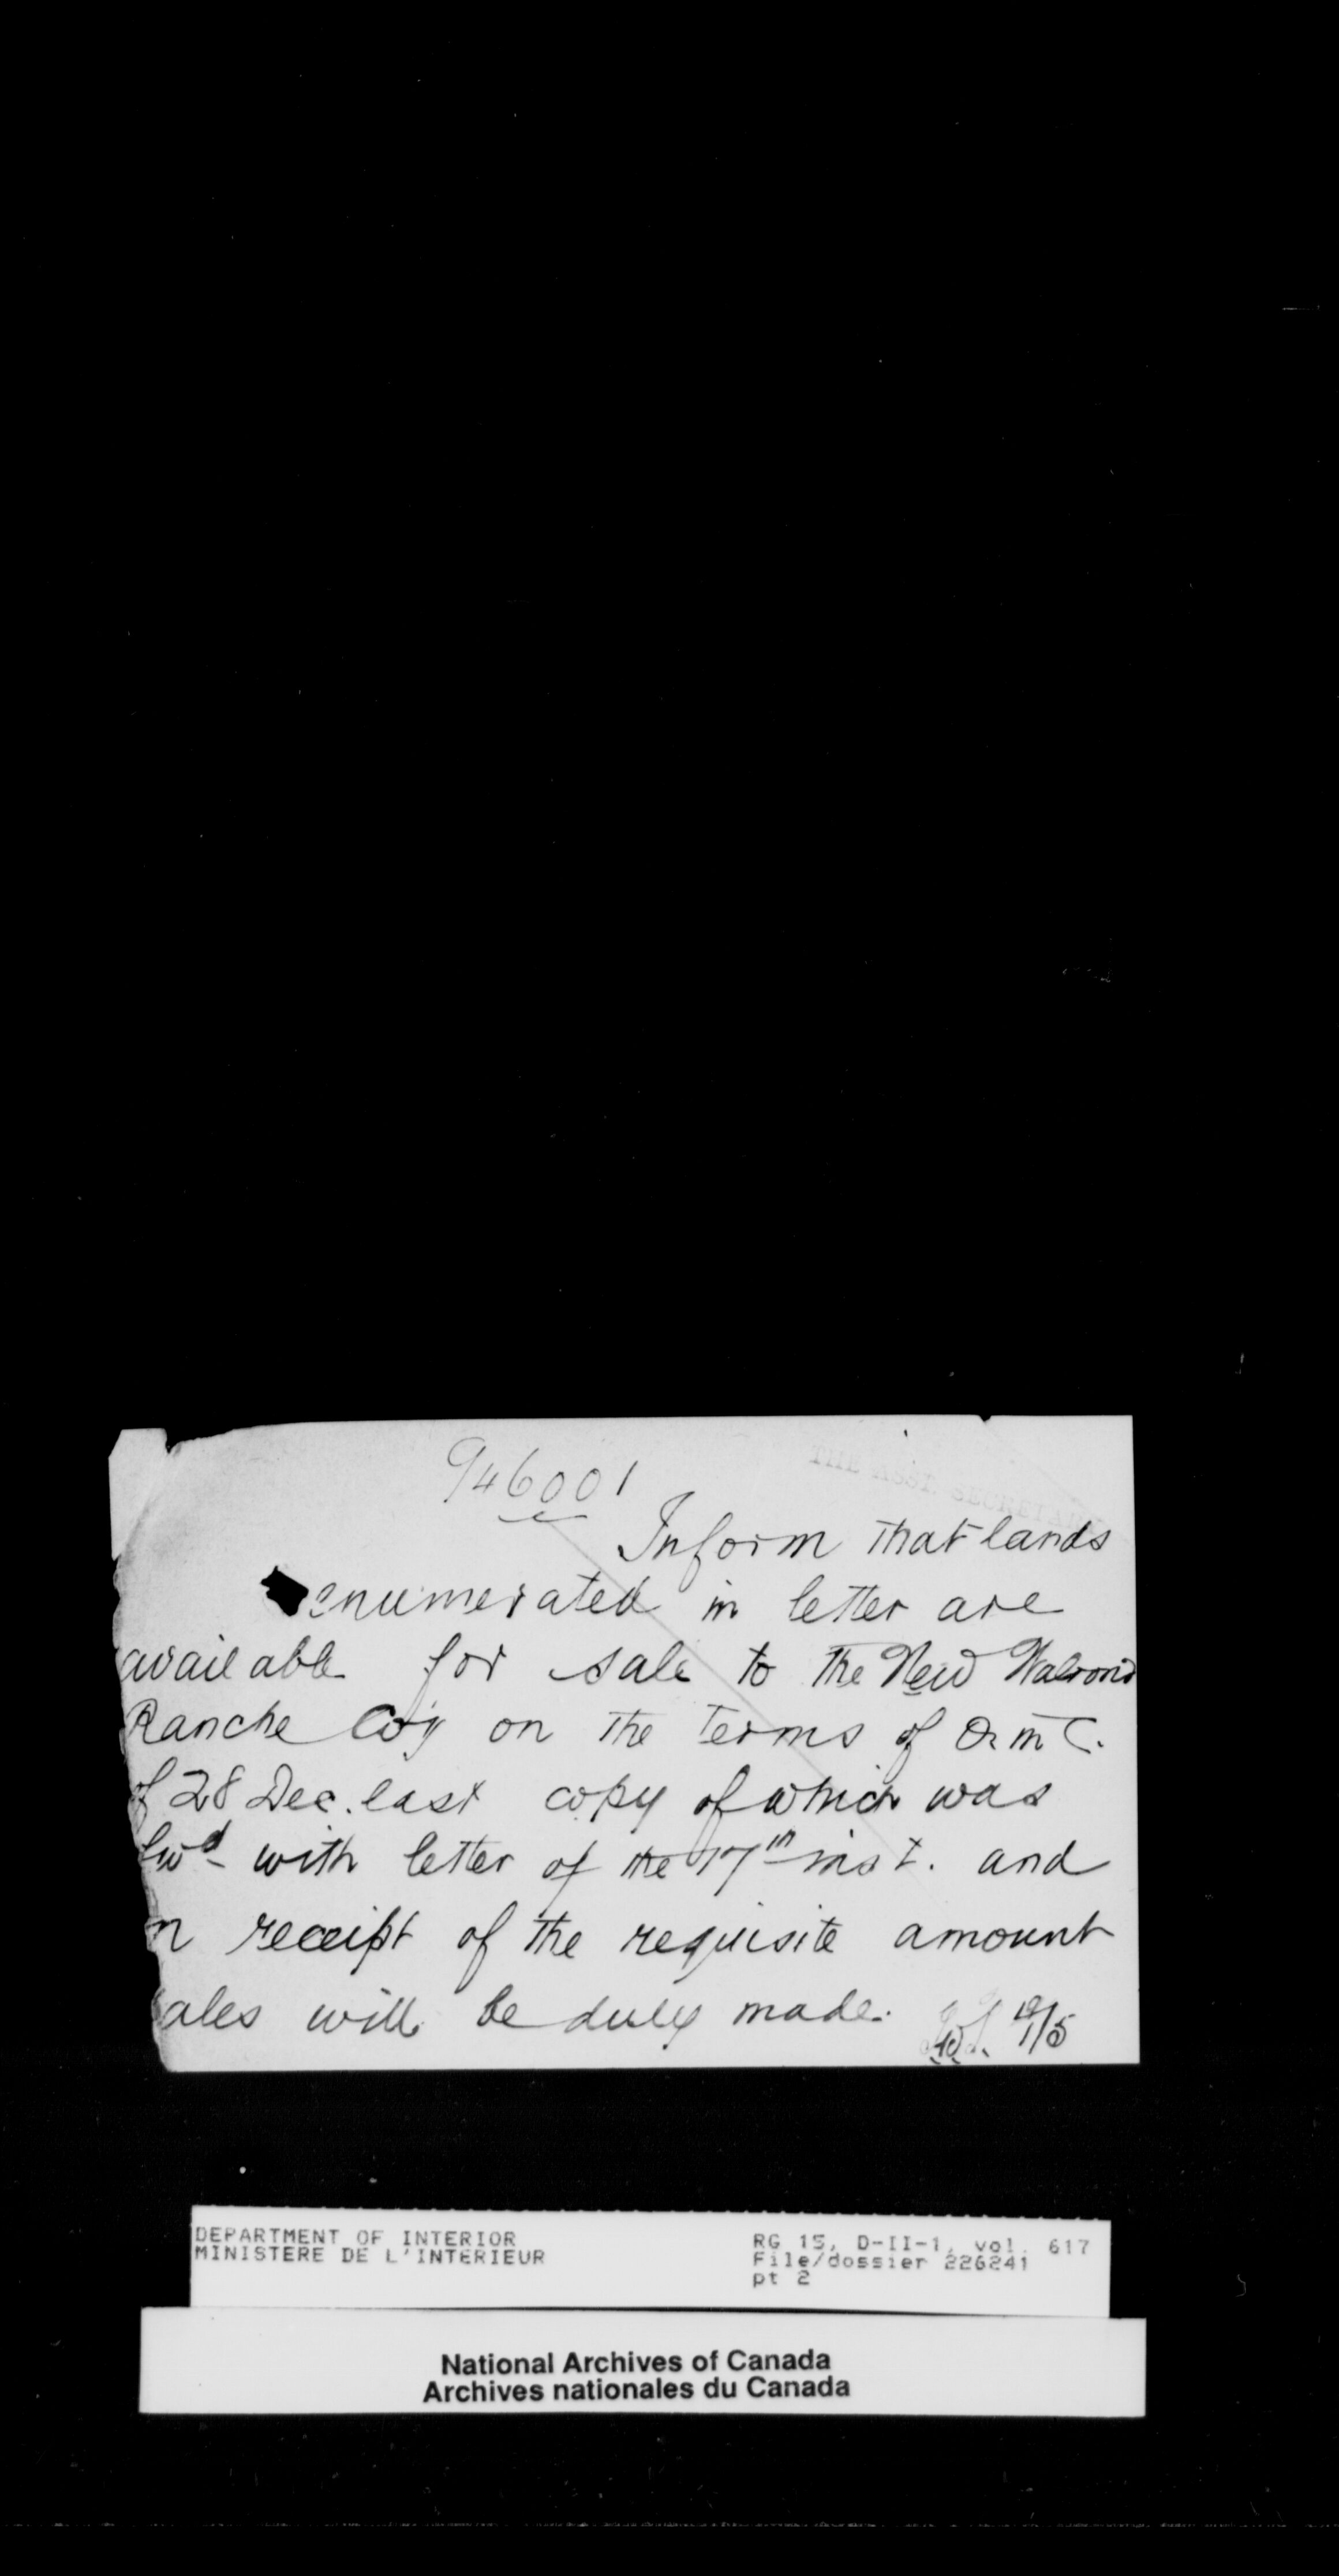 946001
THE ASST. SECRETARY
Inform that lands
enumerated in letter are
available for sale to the New Walrond
Ranche Coy on the terms of O. in C.
of 28 Dec. last copy of which was
fwd with letter of the 17th inst. and
n receipt of the requisite amount
ales will be duly made.
19/1/5
DEPARTMENT OF INTERIOR
MINISTERE DE L'INTERIEUR
RG 15, D-II-1, vol. 617
File/dossier 226241
pt 2
National Archives of Canada
Archives nationales du Canada